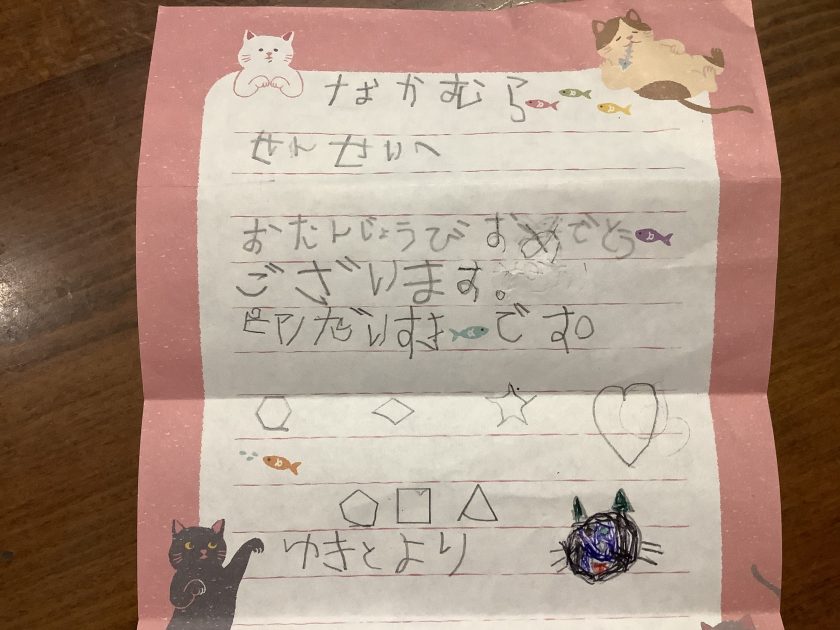 なかむら
せんせいへ
おたんじょうびおめでとう
ございます。
ピアノだいすきです。
ゆきとより